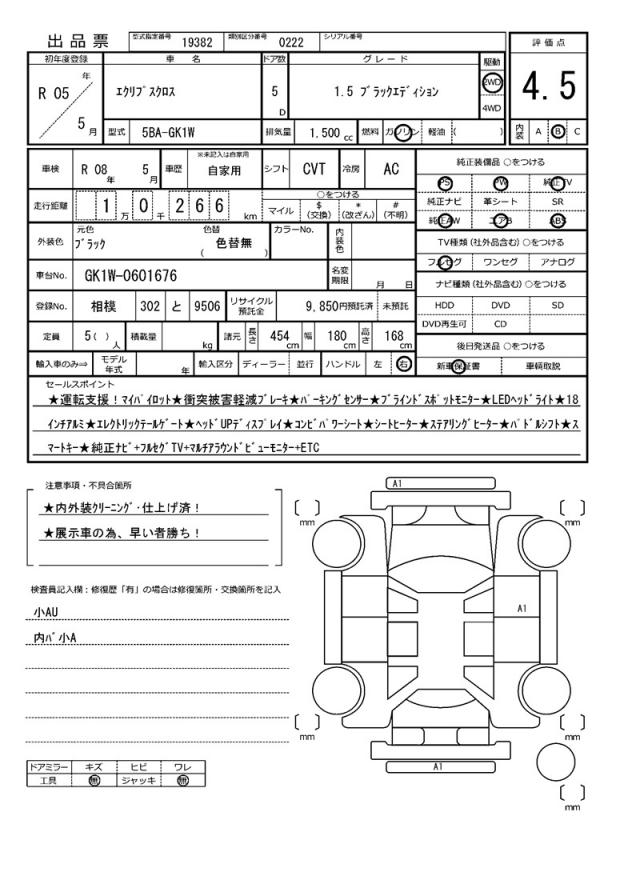 出品票 型式指定番号 19382 類別区分番号 0222 シリアル番号
初年度登録 車名 ドア数 グレード 駆動 評価点
R 05 年 5 月 エクリプスクロス 5 D 1.5 ブラックエディション 2WD 4WD 4.5
型式 5BA-GK1W 排気量 1,500 cc 燃料 ガソリン 軽油 ( ) 内装 A B C
車検 R 08 年 5 月 車歴 ※未記入は自家用 自家用 シフト CVT 冷房 AC 純正装備品 ○をつける
PS PW 純正TV
走行距離 1 万 0 千 2 6 6 km ○をつける マイル $ (交換) * (改ざん) # (不明) 純正ナビ 革シート SR
純正AW エアB ABS
外装色 元色 ブラック 色替 色替無 ( ) カラーNo. 内装色 TV種類 (社外品含む) ○をつける
フルセグ ワンセグ アナログ
車台No. GK1W-0601676 名変期限 月 日 ナビ種類 (社外品含む) ○をつける
登録No. 相模 302 と 9506 リサイクル預託金 9,850円預託済 未預託 HDD DVD SD
DVD再生可 CD
定員 5( ) 人 積載量 kg 諸元 長さ 454 cm 幅 180 cm 高さ 168 cm 後日発送品 ○をつける
輸入車のみ⇒ モデル年式 年 輸入区分 ディーラー 並行 ハンドル 左 右 新車保証書 車輌取説
セールスポイント
★運転支援！マイパイロット★衝突被害軽減ブレーキ★パーキングセンサー★ブラインドスポットモニター★LEDヘッドライト★18
インチアルミ★エレクトリックテールゲート★ヘッドUPディスプレイ★コンビパワーシート★シートヒーター★ステアリングヒーター★パドルシフト★ス
マートキー★純正ナビ+フルセグTV+マルチアラウンドビューモニター+ETC
注意事項・不具合箇所
★内外装クリーニング・仕上げ済！
★展示車の為、早い者勝ち！
検査員記入欄：修復歴「有」の場合は修復箇所・交換箇所を記入
小AU
内バ小A
ドアミラー キズ ヒビ ワレ
工具 無 ジャッキ 無
A1
mm
mm
A1
mm
mm
A1
mm